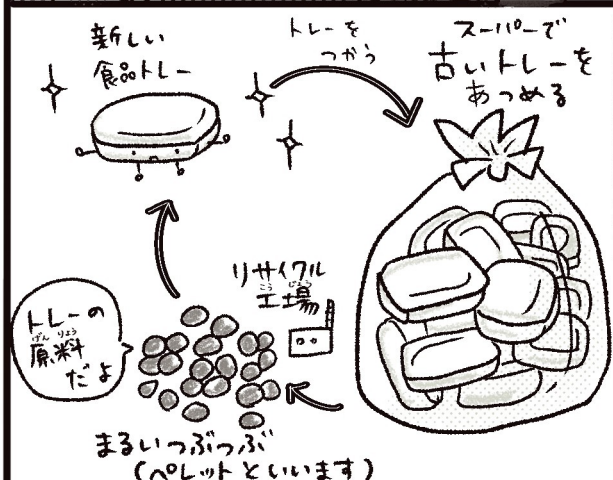 新しい
食品トレー
トレーを
つかう
スーパーで
古いトレーを
あつめる
リサイクル
こうじょう
工場
トレーの
げんりょう
原料
だよ
まるいつぶつぶ
(ペレットといいます)